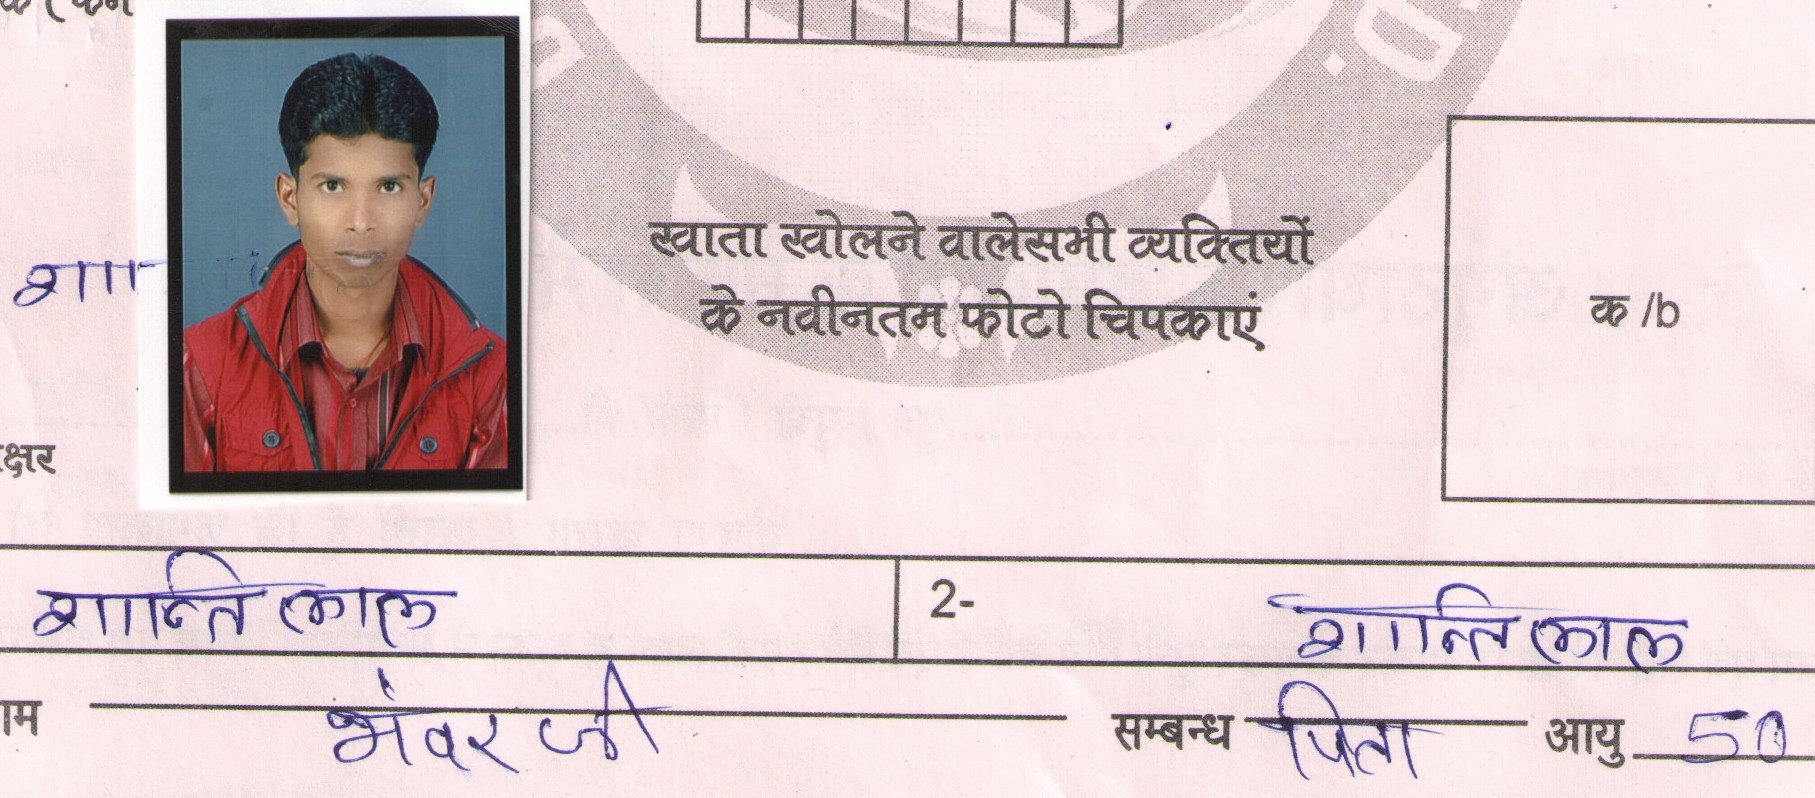 शा
खाता खोलने वालेसभी व्यक्तियों
के नवीनतम फोटो चिपकाएं
क /b
क्षर
शान्ति लाल
2- शान्ति लाल
भंवर जी सम्बन्ध पिता आयु 50